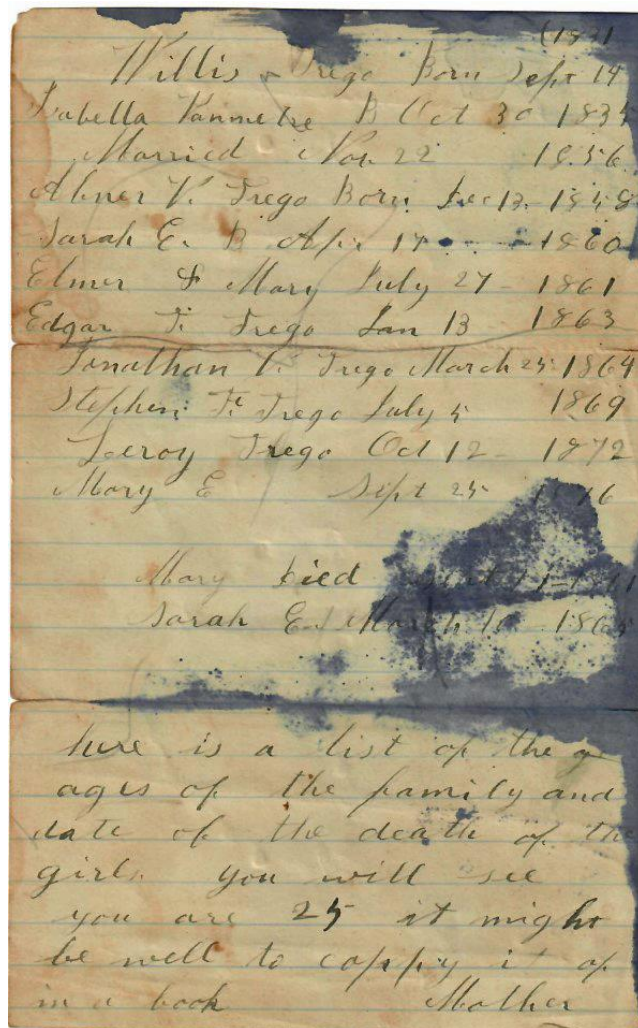 (1831
Willis Trego Born Sept 14
Isabella Vanmetre B Oct 30 183
Married Nov 22 1856
Abner V. Trego Born Dec 13 1858
Sarah E. B Apr 17 - 1860
Elmer & Mary July 27 - 1861
Edgar F. Trego Jan 13 - 1863
Jonathan V. Trego March 25 1864
Stephen F. Trego July 5 1869
Leroy Trego Oct 12 - 1872
Mary E Sept 25
Mary Died
Sarah E. March 10 186
here is a list of the
ages of the family and
date of the death of the
girls. you will see
you are 25 it might
be well to coppy it of
in a book Mother